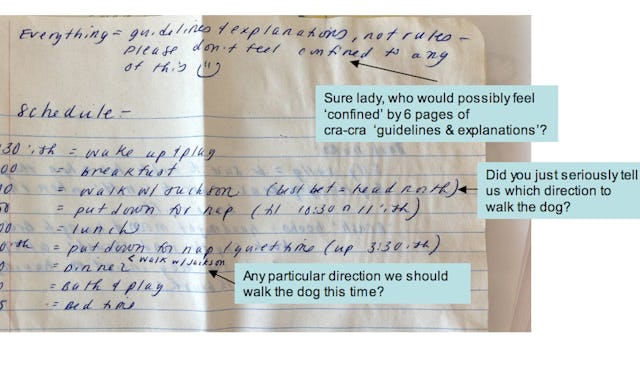 Everything = guidelines & explanations, not rules -
please don't feel confined to any
of this
Sure lady, who would possibly feel
‘confined’ by 6 pages of
cra-cra ‘guidelines & explanations’?
Schedule -
30ish = wake up & play
00 breakfast
= walk w/ Jackson (best bet = head north)
Did you just seriously tell
us which direction to
walk the dog?
= put down for nap (til 10:30 or 11ish)
= lunch
ish = put down for nap / quiet time (up 3:30ish)
= Dinner < walk w/ Jackson
Any particular direction we should
walk the dog this time?
= Bath & play
= Bed time